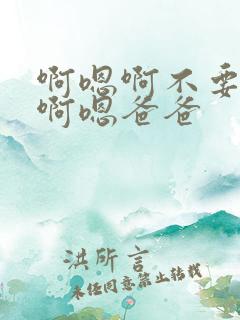 啊嗯啊不要
啊嗯爸爸
洪所言
未经同意禁止转载